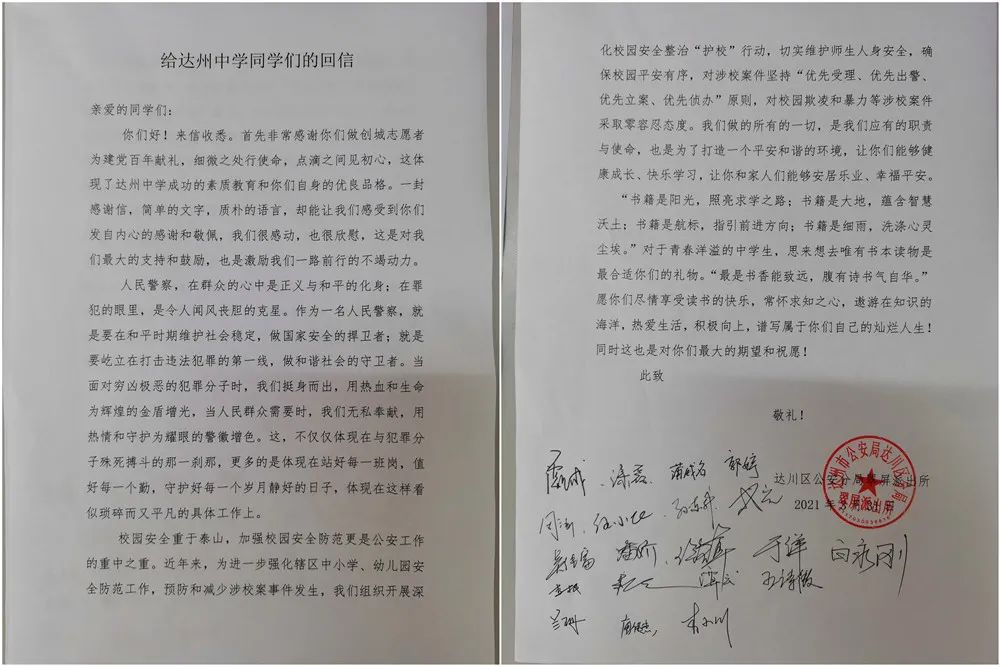 给达州中学同学们的回信
亲爱的同学们：
你们好！来信收悉。首先非常感谢你们做创城志愿者
为建党百年献礼，细微之处行使命，点滴之间见初心，这体
现了达州中学成功的素质教育和你们自身的优良品格。一封
感谢信，简单的文字，质朴的语言，却能让我们感受到你们
发自内心的感谢和敬佩，我们很感动，也很欣慰，这是对我
们最大的支持和鼓励，也是激励我们一路前行的不竭动力。
人民警察，在群众的心中是正义与和平的化身；在罪
犯的眼里，是令人闻风丧胆的克星。作为一名人民警察，就
是要在和平时期维护社会稳定，做国家安全的捍卫者；就是
要屹立在打击违法犯罪的第一线，做和谐社会的守卫者。当
面对穷凶极恶的犯罪分子时，我们挺身而出，用热血和生命
为辉煌的金盾增光，当人民群众需要时，我们无私奉献，用
热情和守护为耀眼的警徽增色。这，不仅仅体现在与犯罪分
子殊死搏斗的那一刹那，更多的是体现在站好每一班岗，值
好每一个勤，守护好每一个岁月静好的日子，体现在这样看
似琐碎而又平凡的具体工作上。
校园安全重于泰山，加强校园安全防范更是公安工作
的重中之重。近年来，为进一步强化辖区中小学、幼儿园安
全防范工作，预防和减少涉校案事件发生，我们组织开展深
化校园安全整治“护校”行动，切实维护师生人身安全，确
保校园平安有序，对涉校案件坚持“优先受理、优先出警、
优先立案、优先侦办”原则，对校园欺凌和暴力等涉校案件
采取零容忍态度。我们做的所有的一切，是我们应有的职责
与使命，也是为了打造一个平安和谐的环境，让你们能够健
康成长、快乐学习，让你和家人们能够安居乐业、幸福平安。
“书籍是阳光，照亮求学之路；书籍是大地，蕴含智慧
沃土；书籍是航标，指引前进方向；书籍是细雨，洗涤心灵
尘埃。”对于青春洋溢的中学生，思来想去唯有书本读物是
最合适你们的礼物。“最是书香能致远，腹有诗书气自华。”
愿你们尽情享受读书的快乐，常怀求知之心，遨游在知识的
海洋，热爱生活，积极向上，谱写属于你们自己的灿烂人生！
同时这也是对你们最大的期望和祝愿！
此致
敬礼！
达川区公安分局翠屏派出所
2021年
达州市公安局达川区分局
翠屏派出所
郭婷
于洋
向永刚